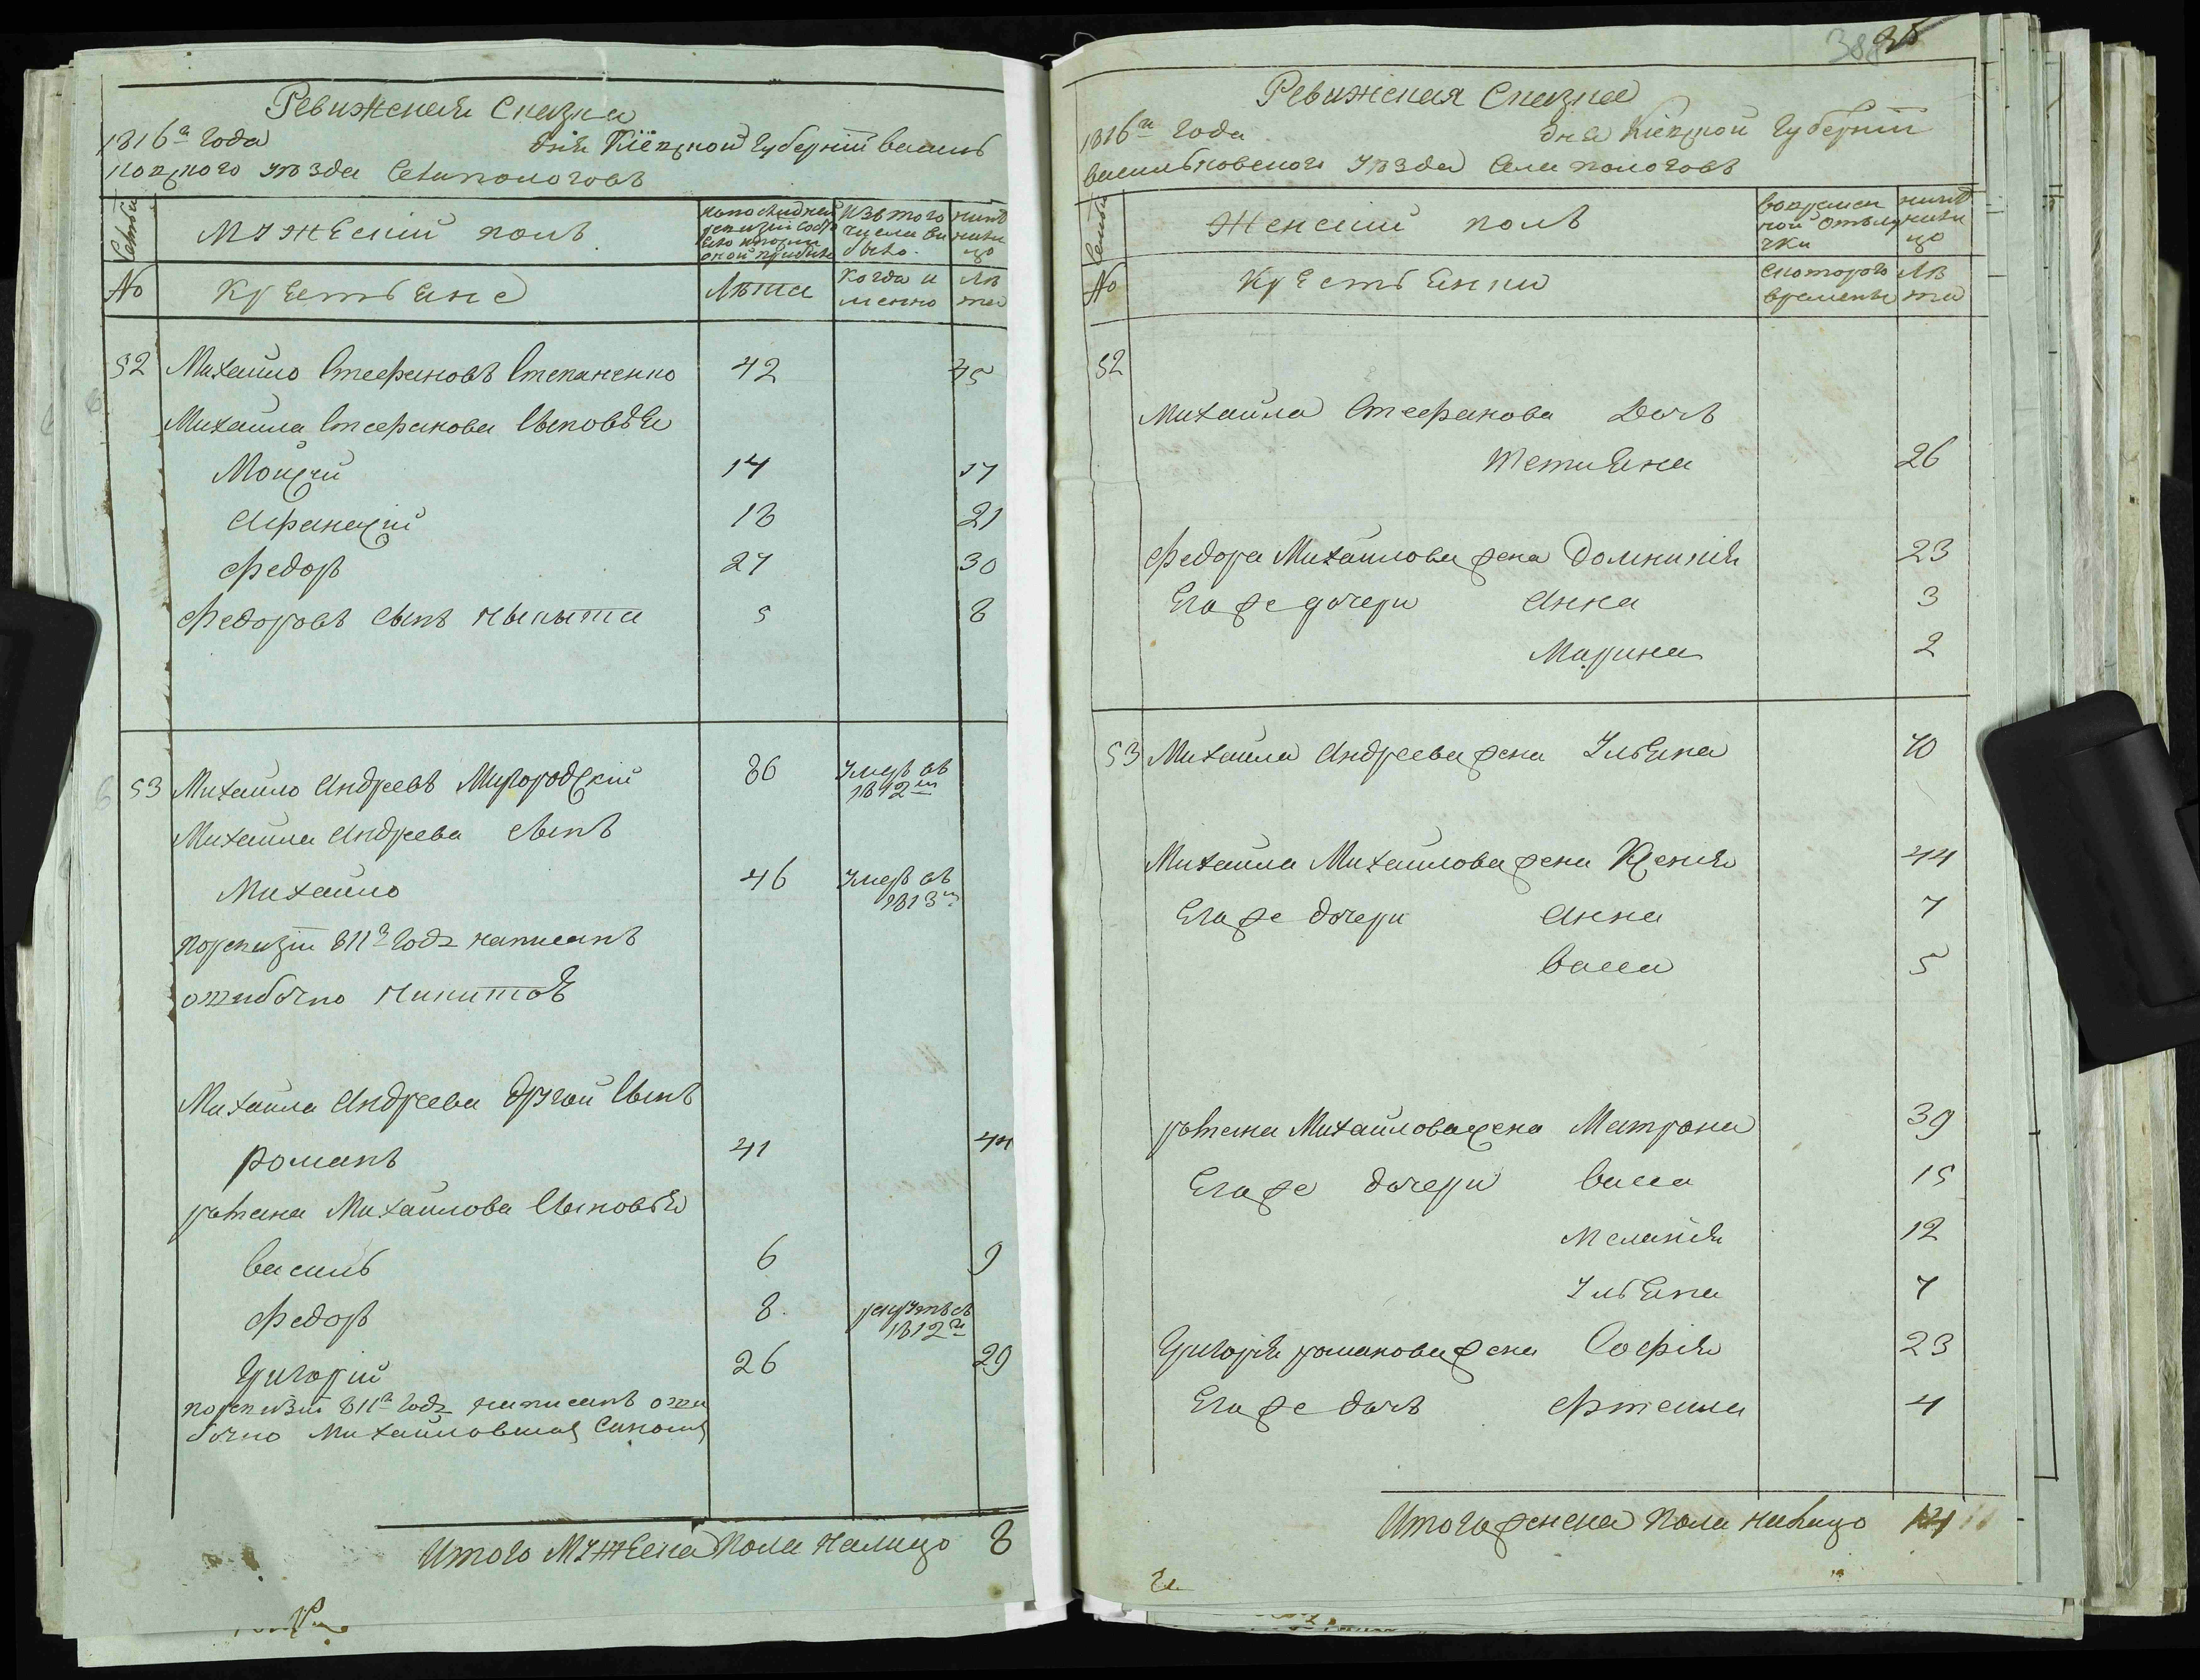 Ревижская Сказка
1816го Года дня Кіевской Губерніи василь
ковского уезда Села пологовъ
Семьи
Мужескій полъ
по последней ревизіи состояло и после оной прибыло
Изъ того числа выбыло
ныне налицо
№
Крестьяне
Лета
Когда именно
Лета
52 Михайло Стефановъ Степаненко 42 45
Михаила Стефанова Сыновья
Моисей 14 17
Афанасій 18 21
Федоръ 27 30
Федоровъ сынъ Никита 5 8
53 Михайло Андреевъ Миргородскій 86 Умеръ въ 1812м
Михаила Андреева сынъ
Михайло 46 Умеръ въ 1813м
по ревизіи 811го года написанъ
ошибочно Никитою
Михаила Андреева другой Сынъ
романъ 41 44
романа Михайлова Сыновья
василь 6 9
Федоръ 8 рекрутъ съ 1812го
Григорій 26 29
по ревизіи 811го года написанъ оши
бочно Михайловымъ Сыномъ
Итого Мужеска Пола Налицо 8
38 35
Ревижская Сказка
1816го Года дня Кіевской Губерніи
васильковского Уезда Села пологовъ
Семьи
Женскій полъ
во временной отлучки
ныне налицо
№
Крестьянки
с которого времени
Лета
52
Михаила Стефанова Дочь
Тетияна 26
Федора Михайлова жена Домникія 23
Его же дочери Анна 3
Марина 2
53 Михаила Андреева жена Ульяна 70
Михаила Михайлова жена Ксенія 44
Его же дочери Анна 7
васса 5
романа Михайлова жена Матрона 39
Его же дочери васса 15
Меланія 12
Ульяна 7
Григорія романова жена Софія 23
Его же дочь Фтенна 4
Итого женска пола налицо 14